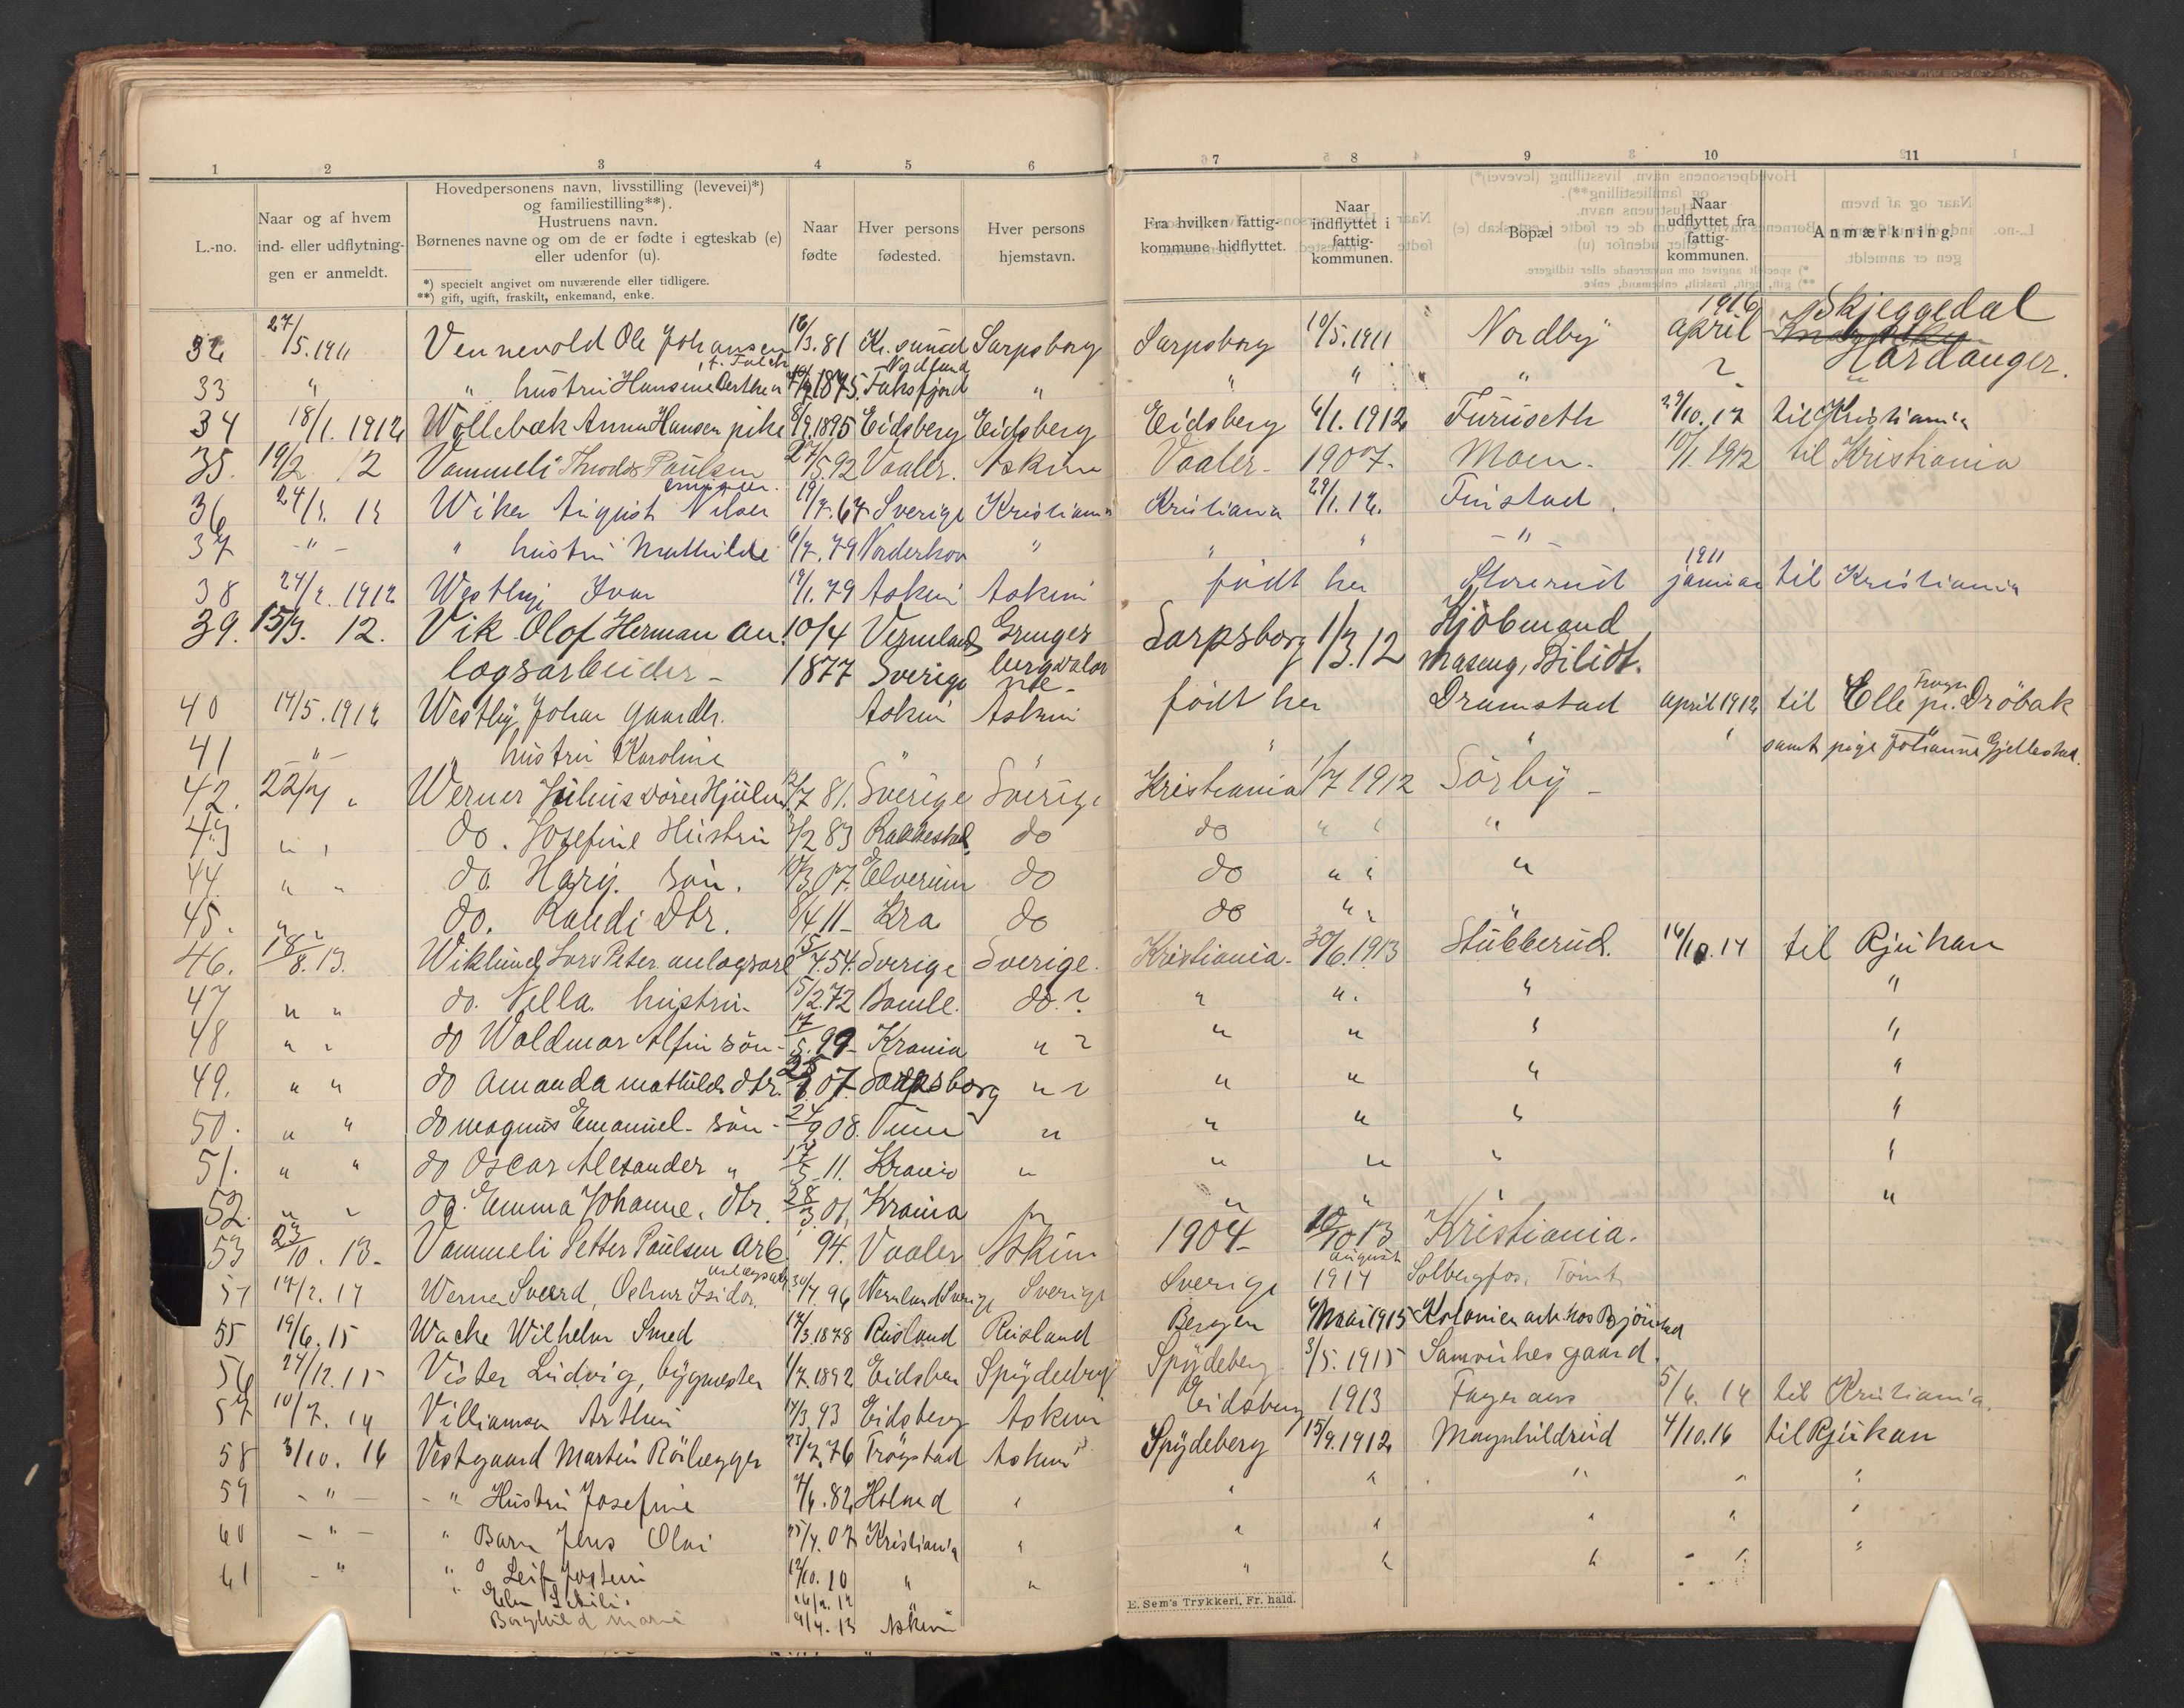 1 2 3 4 5 6 7 8 9 10 11
L.-no.
Naar og af hvem ind- eller udflytningen er anmeldt.
Hovedpersonens navn, livsstilling (levevei)*) og familiestilling**).
Hustruens navn.
Børnenes navne og om de er fødte i egteskab (e) eller udenfor (u).
*) specielt angivet om nuværende eller tidligere.
**) gift, ugift, fraskilt, enkemand, enke.
Naar fødte
Hver persons fødested.
Hver persons hjemstavn.
Fra hvilken fattigkommune hidflyttet.
Naar indflyttet i fattigkommunen.
Bopæl
Naar udflyttet fra fattigkommunen.
Anmærkning.
32 27/5.1911 Vennevold Ole Johansen 16/3.81 Kr.sund Sarpsborg Sarpsborg 10/5.1911 Nordby 1916 april Skjeggedal Hardanger.
33 " " hustru Hansine 1875. " " " "
34 18/1.1912 Wollebæk Anna Hansen pike 8/9.1895 Eidsberg Eidsberg Eidsberg 6/1.1912 Furuseth 29/10.12 til Kristiania
35. 19/2 12 Vammeli Thodor Paulsen 27/5.92 Vaaler. Askim Vaaler. 1907. Moen. 10/1.1912 til Kristiania
36 24/2. 12 Wiker August Nilsen 19/7.67 Sverige Kristiania Kristiania 29/1.12. Finstad.
37 -"- " hustru Mathilde 6/7.79 Norderhov " " " -"-
38 24/2.1912 Westby Ivar 19/1.79 Askim Askim født her Storerud 1911 januar til Kristiania
39. 15/3. 12. Vik Olof Herman an- 10/4 Vermland Sarpsborg 1/3.12 Kjøbmand
lægsarbeider - 1877 Sverige Maseng, Bilidt.
40 14/5.1912 Westby Johan gaardbr. Askim Askim født her Dramstad april 1912 til Elle pr. Drøbak
41 -"- hustru Karoline " " " " " samt pige Johanne Gjellestad.
42. 22/7 " Werner Julius Hjulm. 7 81. Sverige Sverige Kristiania 1/7 1912 Sørby -
43 " " do. Josefine Hustru 2 83 Rakkestad do do " " "
44 " " do. Harry. søn. 3 07. Elverum do do " " "
45. " " do. Randi Dtr. 8/4 11- Kra do do " " "
46. 18/8.13. Wiklund Lars Peter anlægsarb 15/7.54. Sverige Sverige. Kristiania. 30/6.1913 Stubberud. 16/10.14 til Rjukan
47 " " do. Nella hustru- 5/2.72 Bamle. do. ? " " " "
48 " " do Waldmar Alfin søn- 17/5.99- Krania " ? " " " "
49. " " do Amanda Mathilde dtr. 07. Sarpsborg " ? " " " "
50. " " do Magnus Emanuel- søn- 24/9 08. Tune " " " " "
51. " " do Oscar Alexander " 17/5 11. Krania " " " " "
52. " " do. Emma Johanne. dtr. 28/3.01, Krania " " " " "
53 23/10. 13- Vammeli Petter Paulsen Arb. 94. Vaaler Askim 1904- 10/10 13 Kristiania.
54 14/2.14 Werner Sverd, Oskar Isidor. 30/7.96 Wermland Sverige Sverige Sverige august 1914 Solbergfos. Tomt
55 19/6.15 Wacke Wilhelm Smed 14/3.1878 Rusland Rusland Bergen Mai 1915 Kolonien
56 24/12.15 Vister Ludvig, bygmester 1/7.1892 Eidsberg Spydeberg Spydeberg 3/5.1915 Samvirkesgaard.
57 10/7.14 Villiamsen Arthur 14/3.93 Eidsberg Askim Eidsberg 1913 Fageraas 5/6.14 til Kristiania.
58 3/10. 16 Vestgaard Martin Rørlægger 25/2.76 Trøgstad Askim Spydeberg 15/9.1912 Magnhildrud 4/10.16 til Rjukan
59 -"- -" Hustru Josefine 7/6.82 Høland " " " " " "
60 -"- " Barn Jens Olai 25/4.07 Kristiania " " " " " "
61 -" " Leif Jostein 12/10.10 " " " " " "
" Else
Borghild Marie 9/4.13 Askim
E. Sem's Trykkeri, Fr. hald.